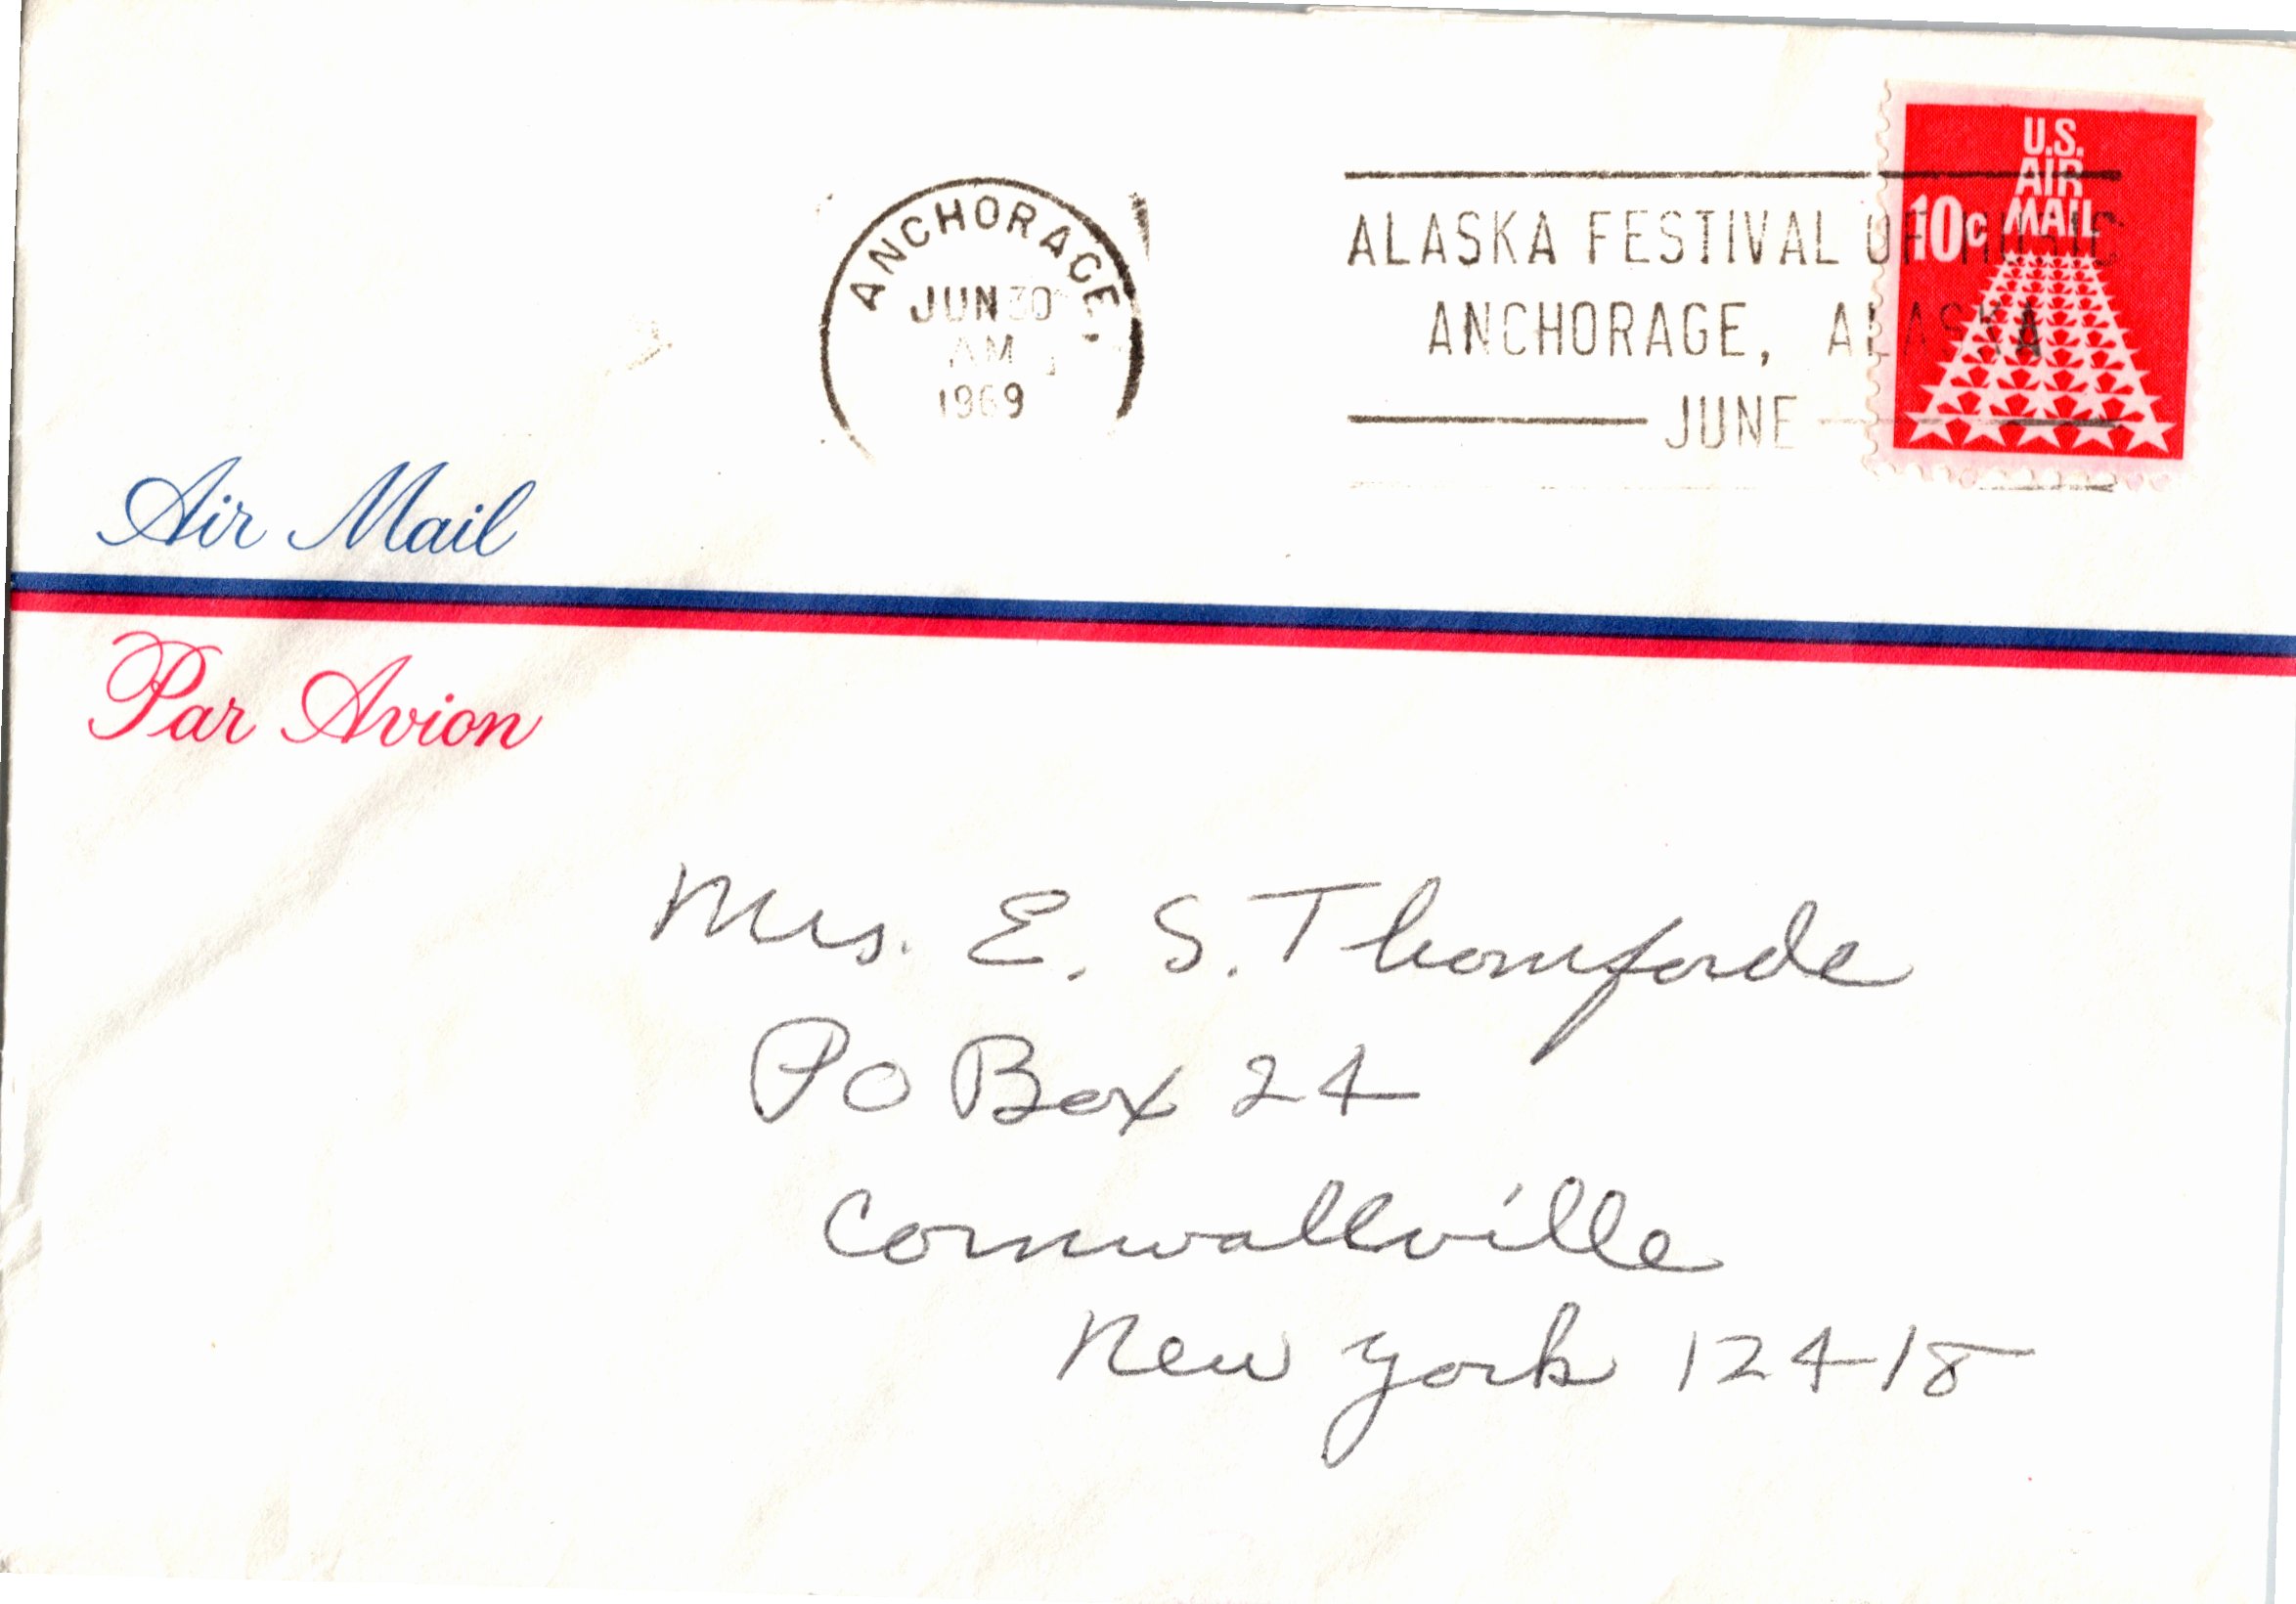 ANCHORAGE,
JUN 30
AM
1969
ALASKA FESTIVAL OF MUSIC
ANCHORAGE, ALASKA
JUNE
U.S.
AIR
MAIL
10c
Air Mail
Par Avion
Mrs. E. S. Thomforde
PO Box 24
Cornwallville
New York 12418